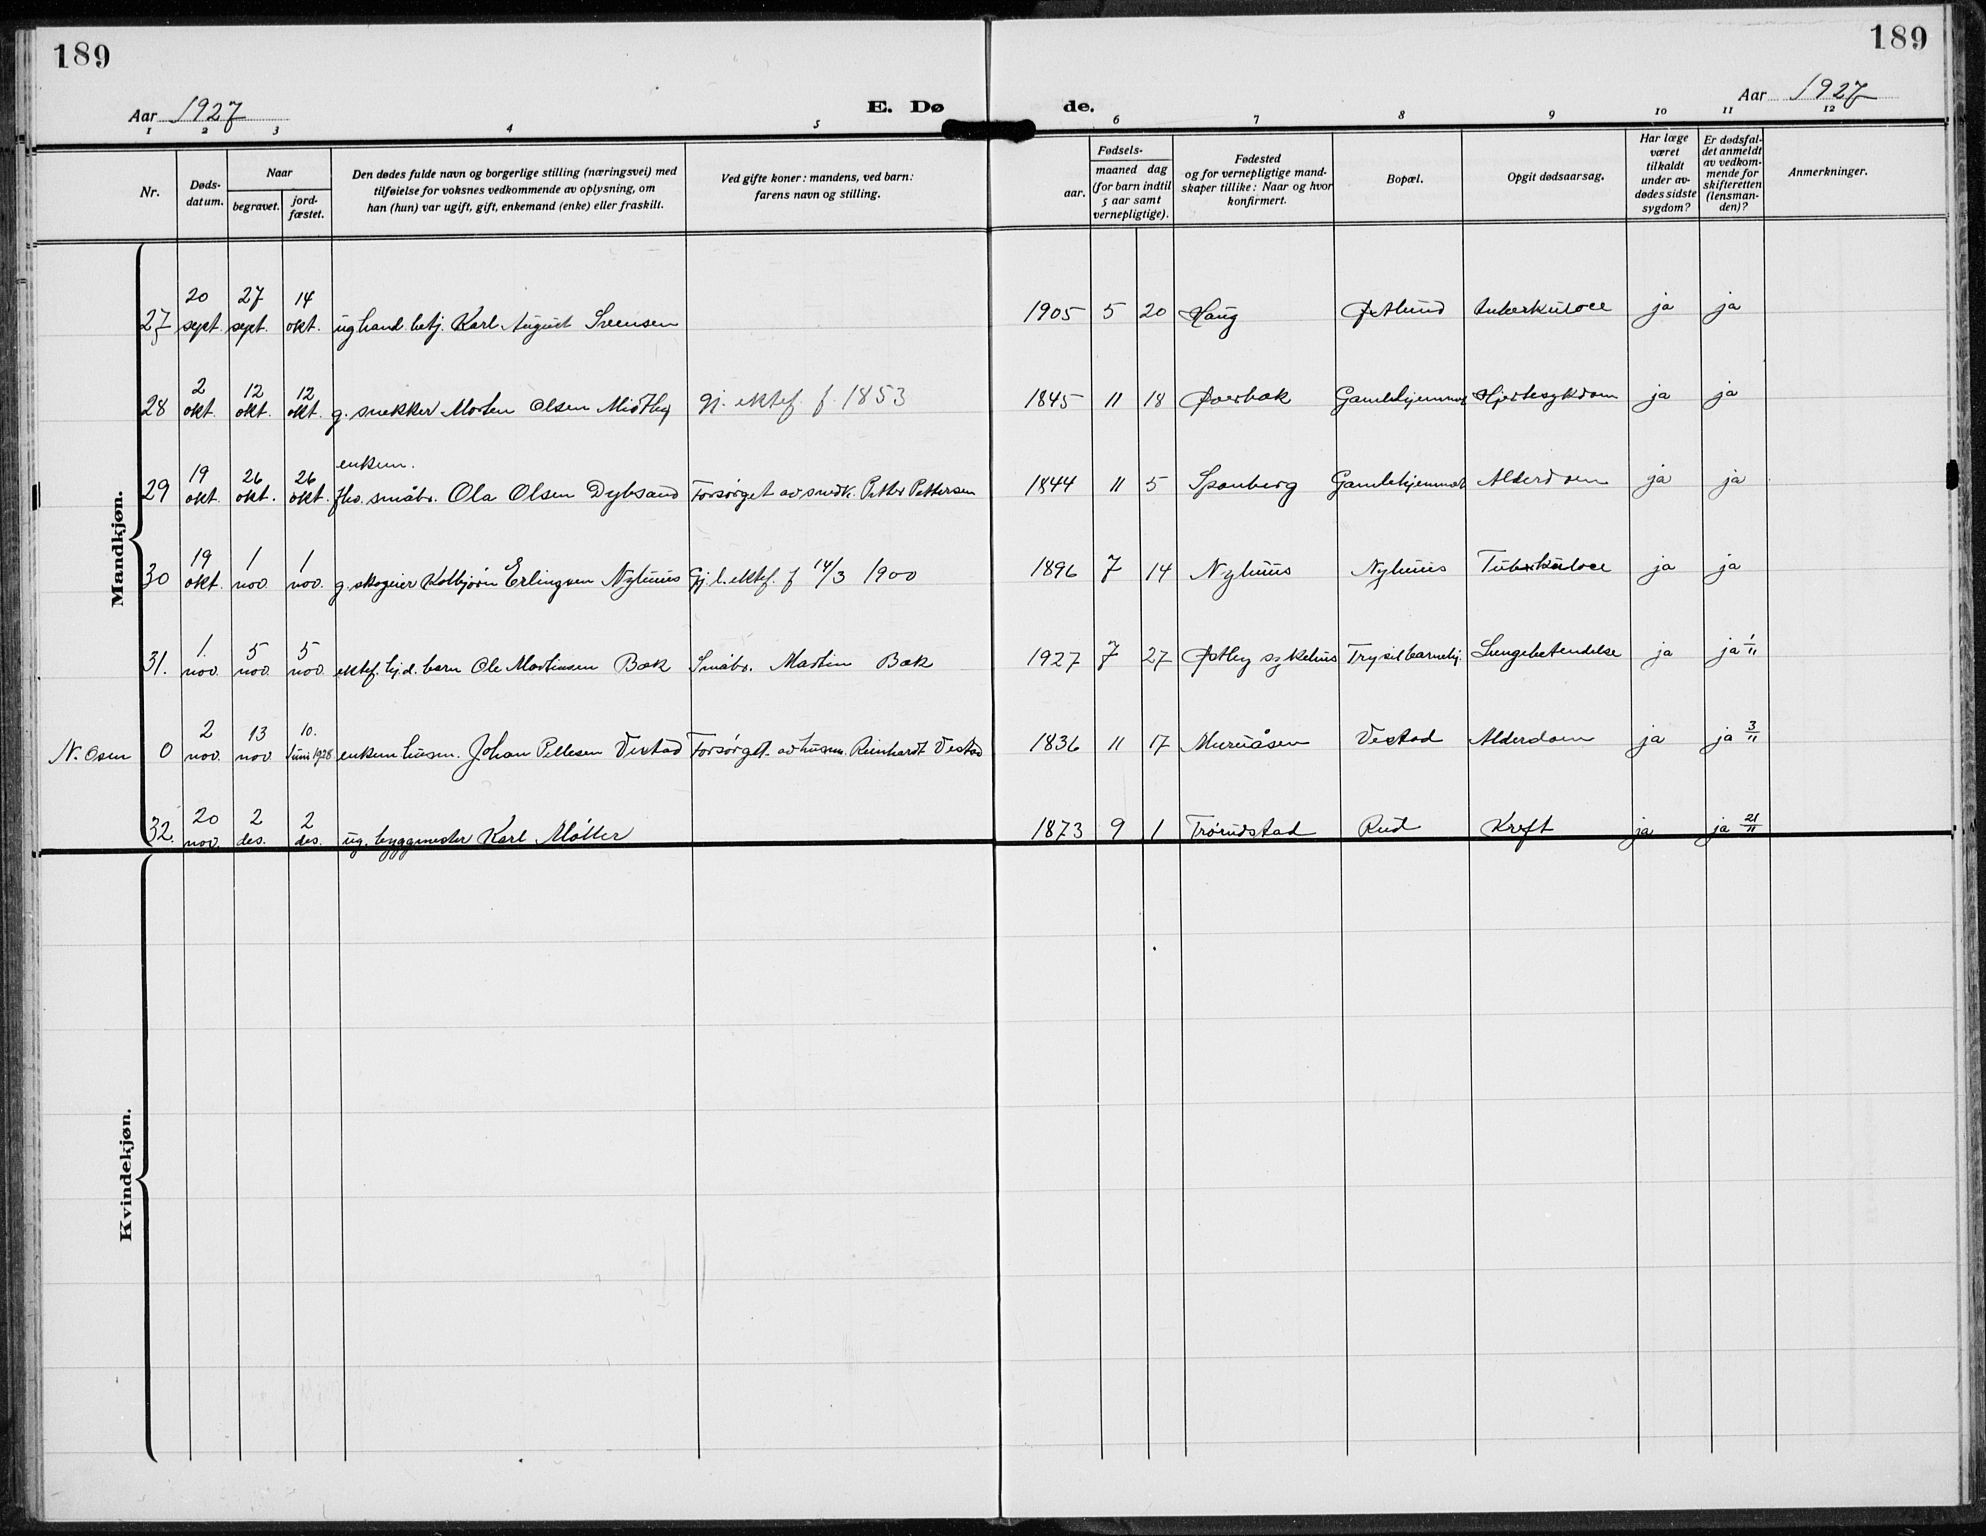 189
189
Aar 1927
E. Døde.
Aar 1927
1 2 3 4 5 6 7 8 9 10 11 12
Nr.
Døds-
datum.
Naar
begravet.
jord-
fæstet.
Den dødes fulde navn og borgerlige stilling (næringsvei) med
tilføielse for voksnes vedkommende av oplysning, om
han (hun) var ugift, gift, enkemand (enke) eller fraskilt.
Ved gifte koner: mandens, ved barn:
farens navn og stilling.
Fødsels-
aar.
maaned dag
(for barn indtil
5 aar samt
vernepligtige).
Fødested
og for vernepligtige mand-
skaper tillike: Naar og hvor
konfirmert.
Bopæl.
Opgit dødsaarsag.
Har læge
været
tilkaldt
under av-
dødes sidste
sygdom?
Er dødsfal-
det anmeldt
av vedkom-
mende for
skifteretten
(lensman-
den)?
Anmerkninger.
Mandkjøn.
20 27 14
27 sept. sept. okt. ug hand. betj. Karl August Svensen 1905 5 20 Haug Østlund tuberkulose ja ja
2 12 12
28 okt. okt. okt. g. snekker Morten Olsen Midtby gj. ektef. f. 1853 1845 11 18 Øverbak Gamlehjemmet Hjertesykdom ja ja
19 26 26 enkem.
29 okt. okt. okt. fho. småbr. Ola Olsen Dybsand Forsørget av snedk. Petter Pettersen 1844 11 5 Sponberg Gamlehjemmet Alderdom ja ja
19 1 1
30 okt. nov. nov. g. skogeier Kolbjørn Erlingsen Nyhuus Gj. l. ektef. f 14/3 1900 1896 7 14 Nyhuus Nyhuus Tuberkulose ja ja
1. 5 5
31. nov. nov. nov. ektef. hj.d. barn Ole Martinsen Bæk Småbr. Martin Bæk 1927 7 27 Østby sykehus Trysil barnehj. Lungebetendelse ja ja 1/11
2 13 10.
N. Osen 0 nov. nov. Juni 1928 enkem husm. Johan Pellesen Vestad Forsørget av husm. Reinhardt Vestad 1836 11 17 Muruåsen Vestad Alderdom ja ja 3/11
20 2 2
32. nov. des. des. ug. byggmester Karl Møller 1873 9 1 Trørudstad Rud Kreft ja ja 21/11
Kvindekjøn.